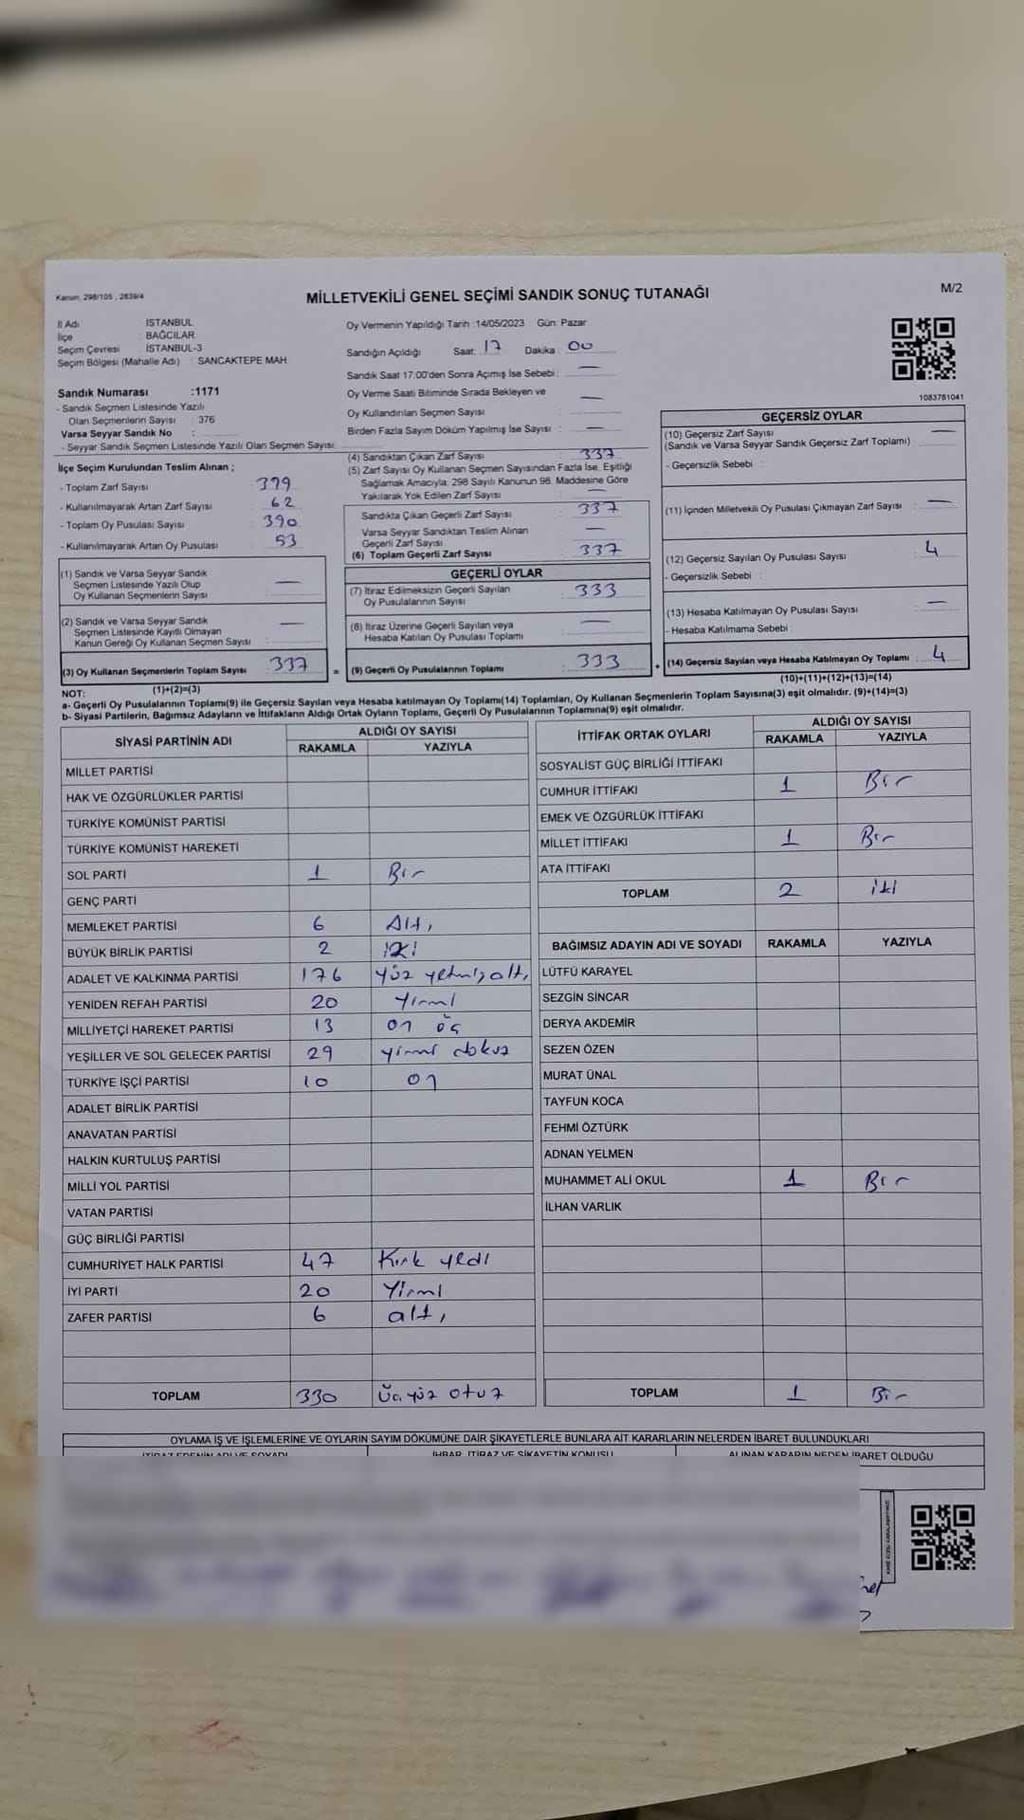 Kanun, 298/105 , 2839/4
MİLLETVEKİLİ GENEL SEÇİMİ SANDIK SONUÇ TUTANAĞI
M/2
İl Adı İSTANBUL
İlçe BAĞCILAR
Seçim Çevresi İSTANBUL-3
Seçim Bölgesi (Mahalle Adı) : SANCAKTEPE MAH
Sandık Numarası :1171
- Sandık Seçmen Listesinde Yazılı
Olan Seçmenlerin Sayısı : 376
Varsa Seyyar Sandık No :
- Seyyar Sandık Seçmen Listesinde Yazılı Olan Seçmen Sayısı :
Oy Vermenin Yapıldığı Tarih :14/05/2023 Gün: Pazar
Sandığın Açıldığı Saat: 17 Dakika : 00
Sandık Saat 17:00'den Sonra Açımış İse Sebebi : —
Oy Verme Saati Bitiminde Sırada Bekleyen ve
Oy Kullandırılan Seçmen Sayısı : —
Birden Fazla Sayım Döküm Yapılmış İse Sayısı : —
1083781041
İlçe Seçim Kurulundan Teslim Alınan ;
- Toplam Zarf Sayısı 399
- Kullanılmayarak Artan Zarf Sayısı 62
- Toplam Oy Pusulası Sayısı 390
- Kullanılmayarak Artan Oy Pusulası 53
(1) Sandık ve Varsa Seyyar Sandık
Seçmen Listesinde Yazılı Olup
Oy Kullanan Seçmenlerin Sayısı —
(2) Sandık ve Varsa Seyyar Sandık
Seçmen Listesinde Kayıtlı Olmayan
Kanun Gereği Oy Kullanan Seçmen Sayısı —
(3) Oy Kullanan Seçmenlerin Toplam Sayısı 337
(1)+(2)=(3)
(4) Sandıktan Çıkan Zarf Sayısı : 337
(5) Zarf Sayısı Oy Kullanan Seçmen Sayısından Fazla İse, Eşitliği
Sağlamak Amacıyla; 298 Sayılı Kanunun 98. Maddesine Göre
Yakılarak Yok Edilen Zarf Sayısı : —
Sandıkta Çıkan Geçerli Zarf Sayısı : 337
Varsa Seyyar Sandıktan Teslim Alınan
Geçerli Zarf Sayısı : —
(6) Toplam Geçerli Zarf Sayısı : 337
GEÇERLİ OYLAR
(7) İtiraz Edilmeksizin Geçerli Sayılan
Oy Pusulalarının Sayısı : 333
(8) İtiraz Üzerine Geçerli Sayılan veya
Hesaba Katılan Oy Pusulası Toplamı : —
= (9) Geçerli Oy Pusulalarının Toplamı : 333
GEÇERSİZ OYLAR
(10) Geçersiz Zarf Sayısı : —
(Sandık ve Varsa Seyyar Sandık Geçersiz Zarf Toplamı)
- Geçersizlik Sebebi :
(11) İçinden Milletvekili Oy Pusulası Çıkmayan Zarf Sayısı : —
(12) Geçersiz Sayılan Oy Pusulası Sayısı : 4
- Geçersizlik Sebebi :
(13) Hesaba Katılmayan Oy Pusulası Sayısı : —
- Hesaba Katılmama Sebebi :
+ (14) Geçersiz Sayılan veya Hesaba Katılmayan Oy Toplamı : 4
(10)+(11)+(12)+(13)=(14)
NOT:
a- Geçerli Oy Pusulalarının Toplamı(9) ile Geçersiz Sayılan veya Hesaba katılmayan Oy Toplamı(14) Toplamları, Oy Kullanan Seçmenlerin Toplam Sayısına(3) eşit olmalıdır. (9)+(14)=(3)
b- Siyasi Partilerin, Bağımsız Adayların ve İttifakların Aldığı Ortak Oyların Toplamı, Geçerli Oy Pusulalarının Toplamına(9) eşit olmalıdır.
SİYASİ PARTİNİN ADI ALDIĞI OY SAYISI
RAKAMLA YAZIYLA
MİLLET PARTİSİ
HAK VE ÖZGÜRLÜKLER PARTİSİ
TÜRKİYE KOMÜNİST PARTİSİ
TÜRKİYE KOMÜNİST HAREKETİ
SOL PARTİ 1 Bir
GENÇ PARTİ
MEMLEKET PARTİSİ 6 Altı
BÜYÜK BİRLİK PARTİSİ 2 iki
ADALET VE KALKINMA PARTİSİ 176 yüz yetmiş altı
YENİDEN REFAH PARTİSİ 20 Yirmi
MİLLİYETÇİ HAREKET PARTİSİ 13 on üç
YEŞİLLER VE SOL GELECEK PARTİSİ 29 yirmi dokuz
TÜRKİYE İŞÇİ PARTİSİ 10 on
ADALET BİRLİK PARTİSİ
ANAVATAN PARTİSİ
HALKIN KURTULUŞ PARTİSİ
MİLLİ YOL PARTİSİ
VATAN PARTİSİ
GÜÇ BİRLİĞİ PARTİSİ
CUMHURİYET HALK PARTİSİ 47 Kırk yedi
İYİ PARTİ 20 Yirmi
ZAFER PARTİSİ 6 altı
TOPLAM 330 Üçyüz otuz
İTTİFAK ORTAK OYLARI ALDIĞI OY SAYISI
RAKAMLA YAZIYLA
SOSYALİST GÜÇ BİRLİĞİ İTTİFAKI
CUMHUR İTTİFAKI 1 Bir
EMEK VE ÖZGÜRLÜK İTTİFAKI
MİLLET İTTİFAKI 1 Bir
ATA İTTİFAKI
TOPLAM 2 iki
BAĞIMSIZ ADAYIN ADI VE SOYADI RAKAMLA YAZIYLA
LÜTFÜ KARAYEL
SEZGİN SİNCAR
DERYA AKDEMİR
SEZEN ÖZEN
MURAT ÜNAL
TAYFUN KOCA
FEHMİ ÖZTÜRK
ADNAN YELMEN
MUHAMMET ALİ OKUL 1 Bir
İLHAN VARLIK
TOPLAM 1 Bir
OYLAMA İŞ VE İŞLEMLERİNE VE OYLARIN SAYIM DÖKÜMÜNE DAİR ŞİKAYETLERLE BUNLARA AİT KARARLARIN NELERDEN İBARET BULUNDUKLARI
İTİRAZ EDENİN ADI VE SOYADI İHBAR, İTİRAZ VE ŞİKAYETİN KONUSU ALINAN KARARIN NEDEN İBARET OLDUĞU